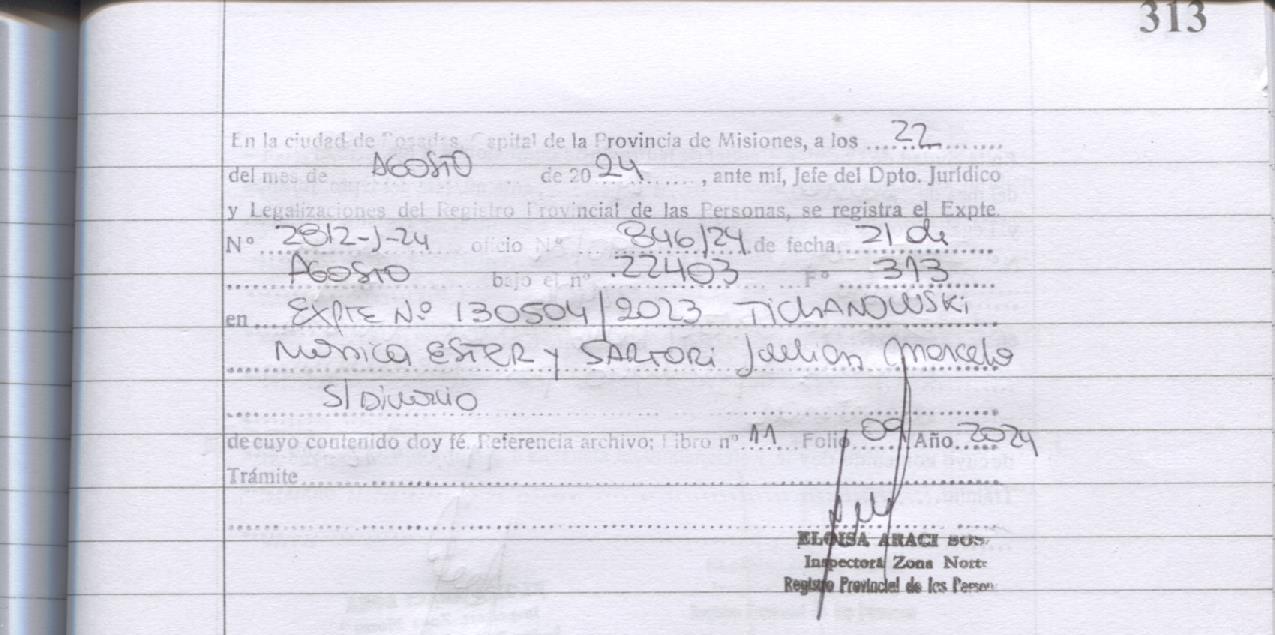 313
En la ciudad de Posadas, Capital de la Provincia de Misiones, a los 22
del mes de AGOSTO de 2024, ante mí, Jefe del Dpto. Jurídico
y Legalizaciones del Registro Provincial de las Personas, se registra el Expte.
Nº 2812-J-24 oficio Nº 846/24 de fecha 21 de
AGOSTO bajo el nº 22403 Fº 313
en EXPTE Nº 130504/2023 TICHANOWSKI
Mónica ESTER y SARTORI Julian Marcelo
S/ Divorcio
de cuyo contenido doy fé. Referencia archivo; Libro nº 11 Folio 09 Año 2024
Trámite
ELOISA ARACI SOS
Inspectora Zona Norte
Registro Provincial de las Person